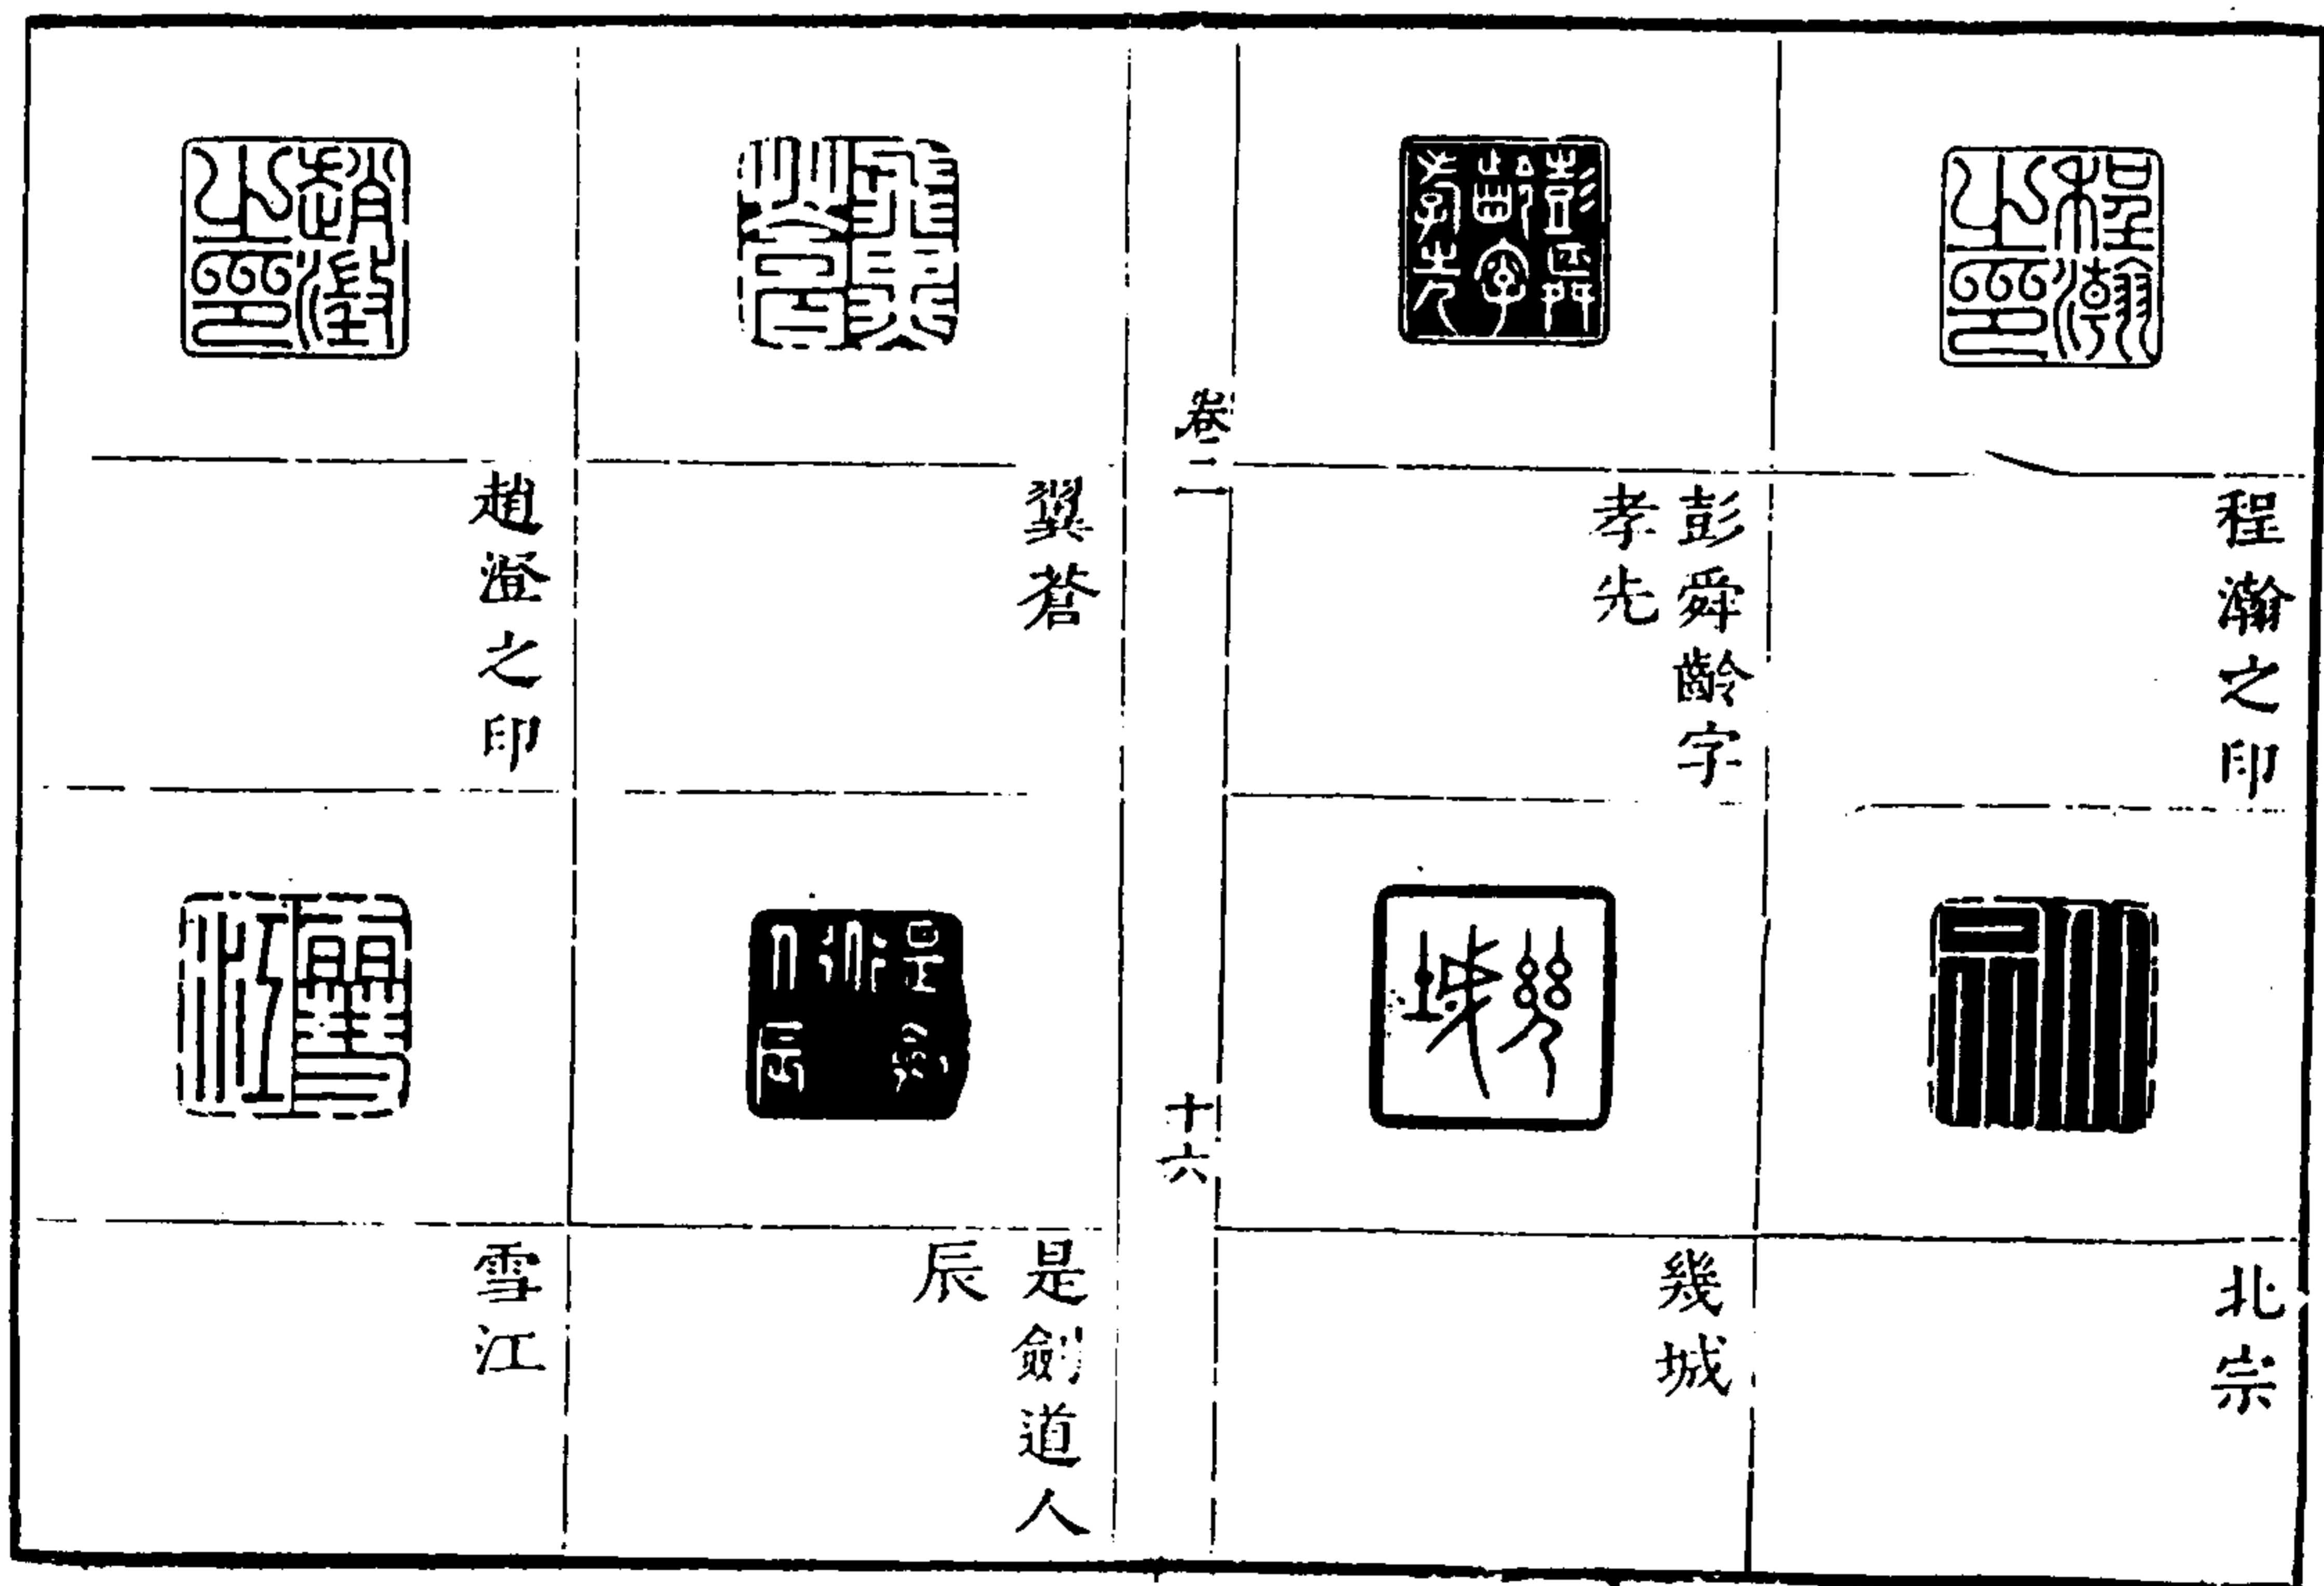 程瀚之印
北宗
彭舜齡字
孝先
幾城
卷二
十六
翼蒼
是劍道人
辰
趙澄之印
雪江